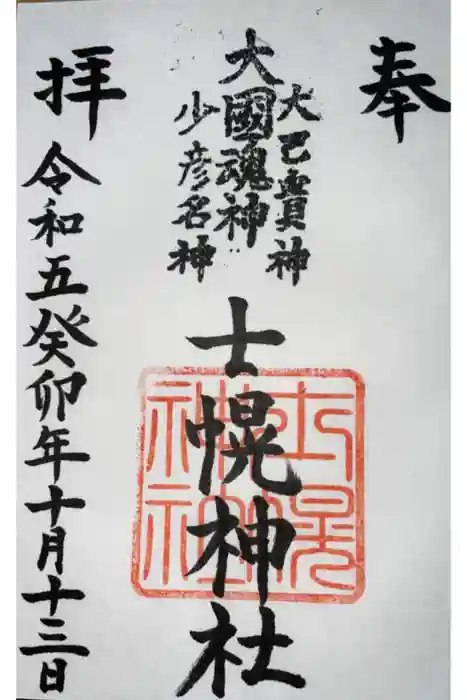 奉
大己貴神
大國魂神
少彦名神
士幌神社
士幌神社
拝
令和五癸卯年十月十三日